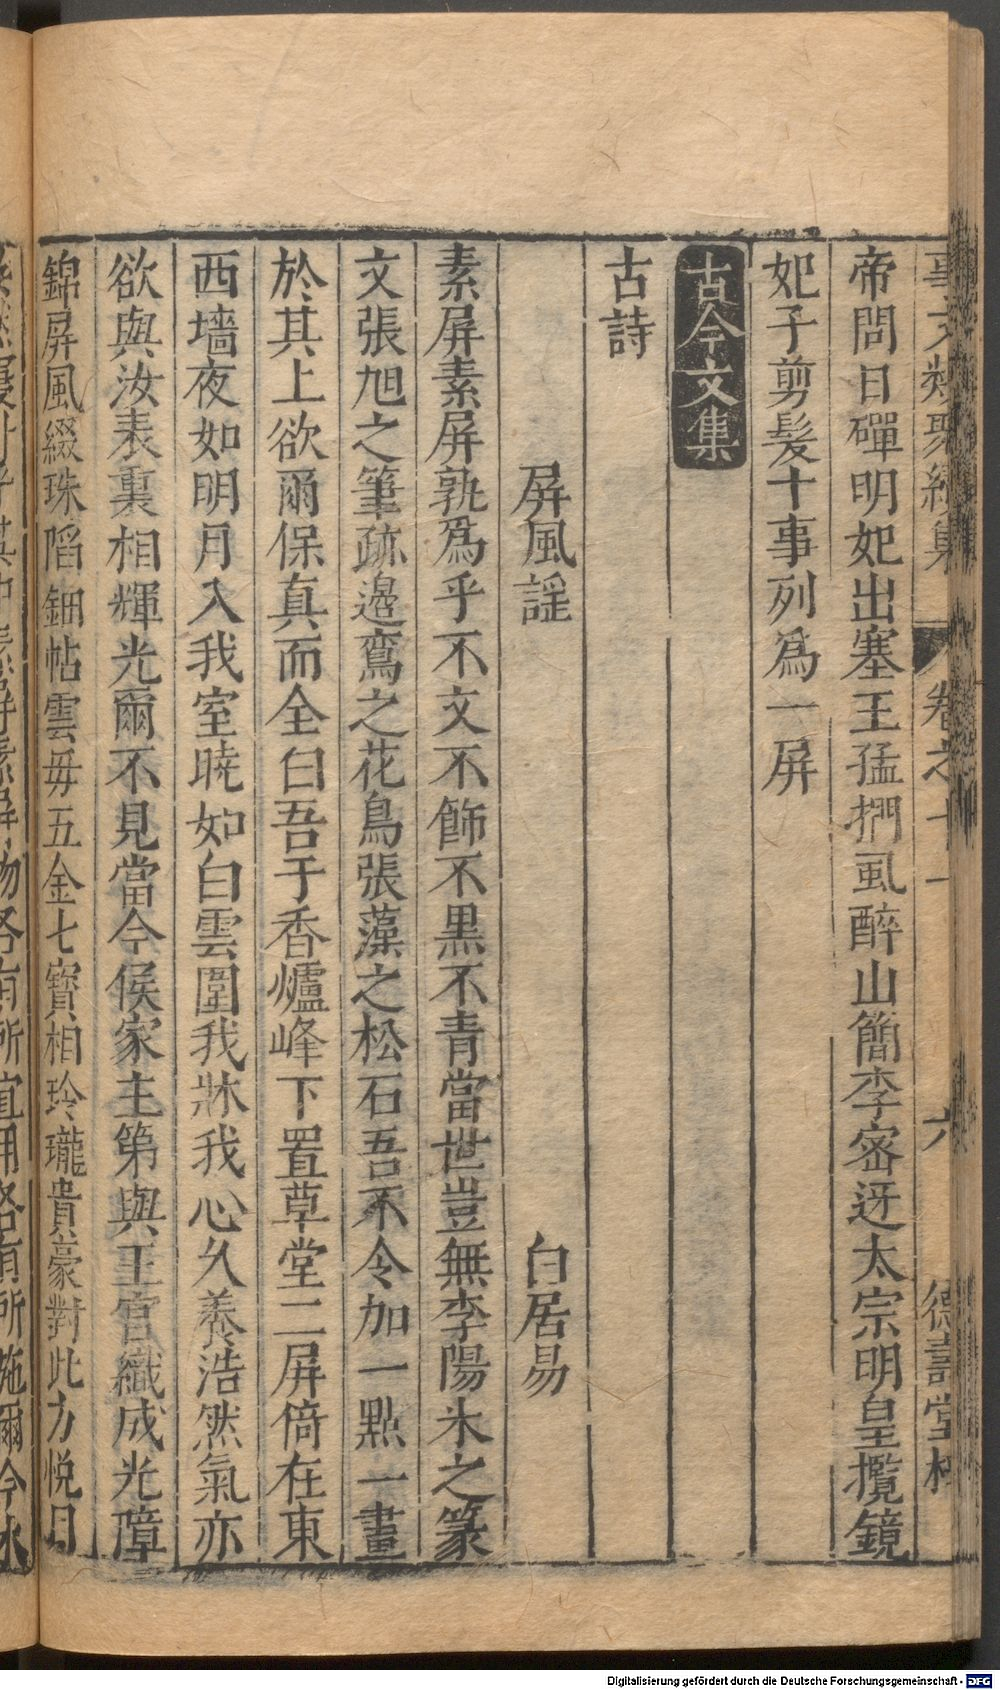 事文類聚續集 卷之十一 六 德壽堂梓
帝問日磾明妃出塞王猛捫虱醉山簡李密迓太宗明皇攬鏡
妃子剪髮十事列為一屏
古今文集
古詩
屏風謡 白居易
素屏素屏孰爲乎不文不飾不黒不青當世豈無李陽氷之篆
文張旭之筆跡邉鸞之花鳥張藻之松石吾不令加一點一畫
於其上欲爾保真而全白吾于香爐峰下置草堂二屏倚在東
西墻夜如明月入我室曉如白雲圍我牀我心久養浩然氣亦
欲與汝表裏相輝光爾不見當今侯家主第與王宫織成光障
錦屏風綴珠䧟鈿帖雲毋五金七寳相玲瓏貴豪對此方悦目
物各有所宜用各有所施爾今
Digitalisierung gefördert durch die Deutsche Forschungsgemeinschaft - DFG